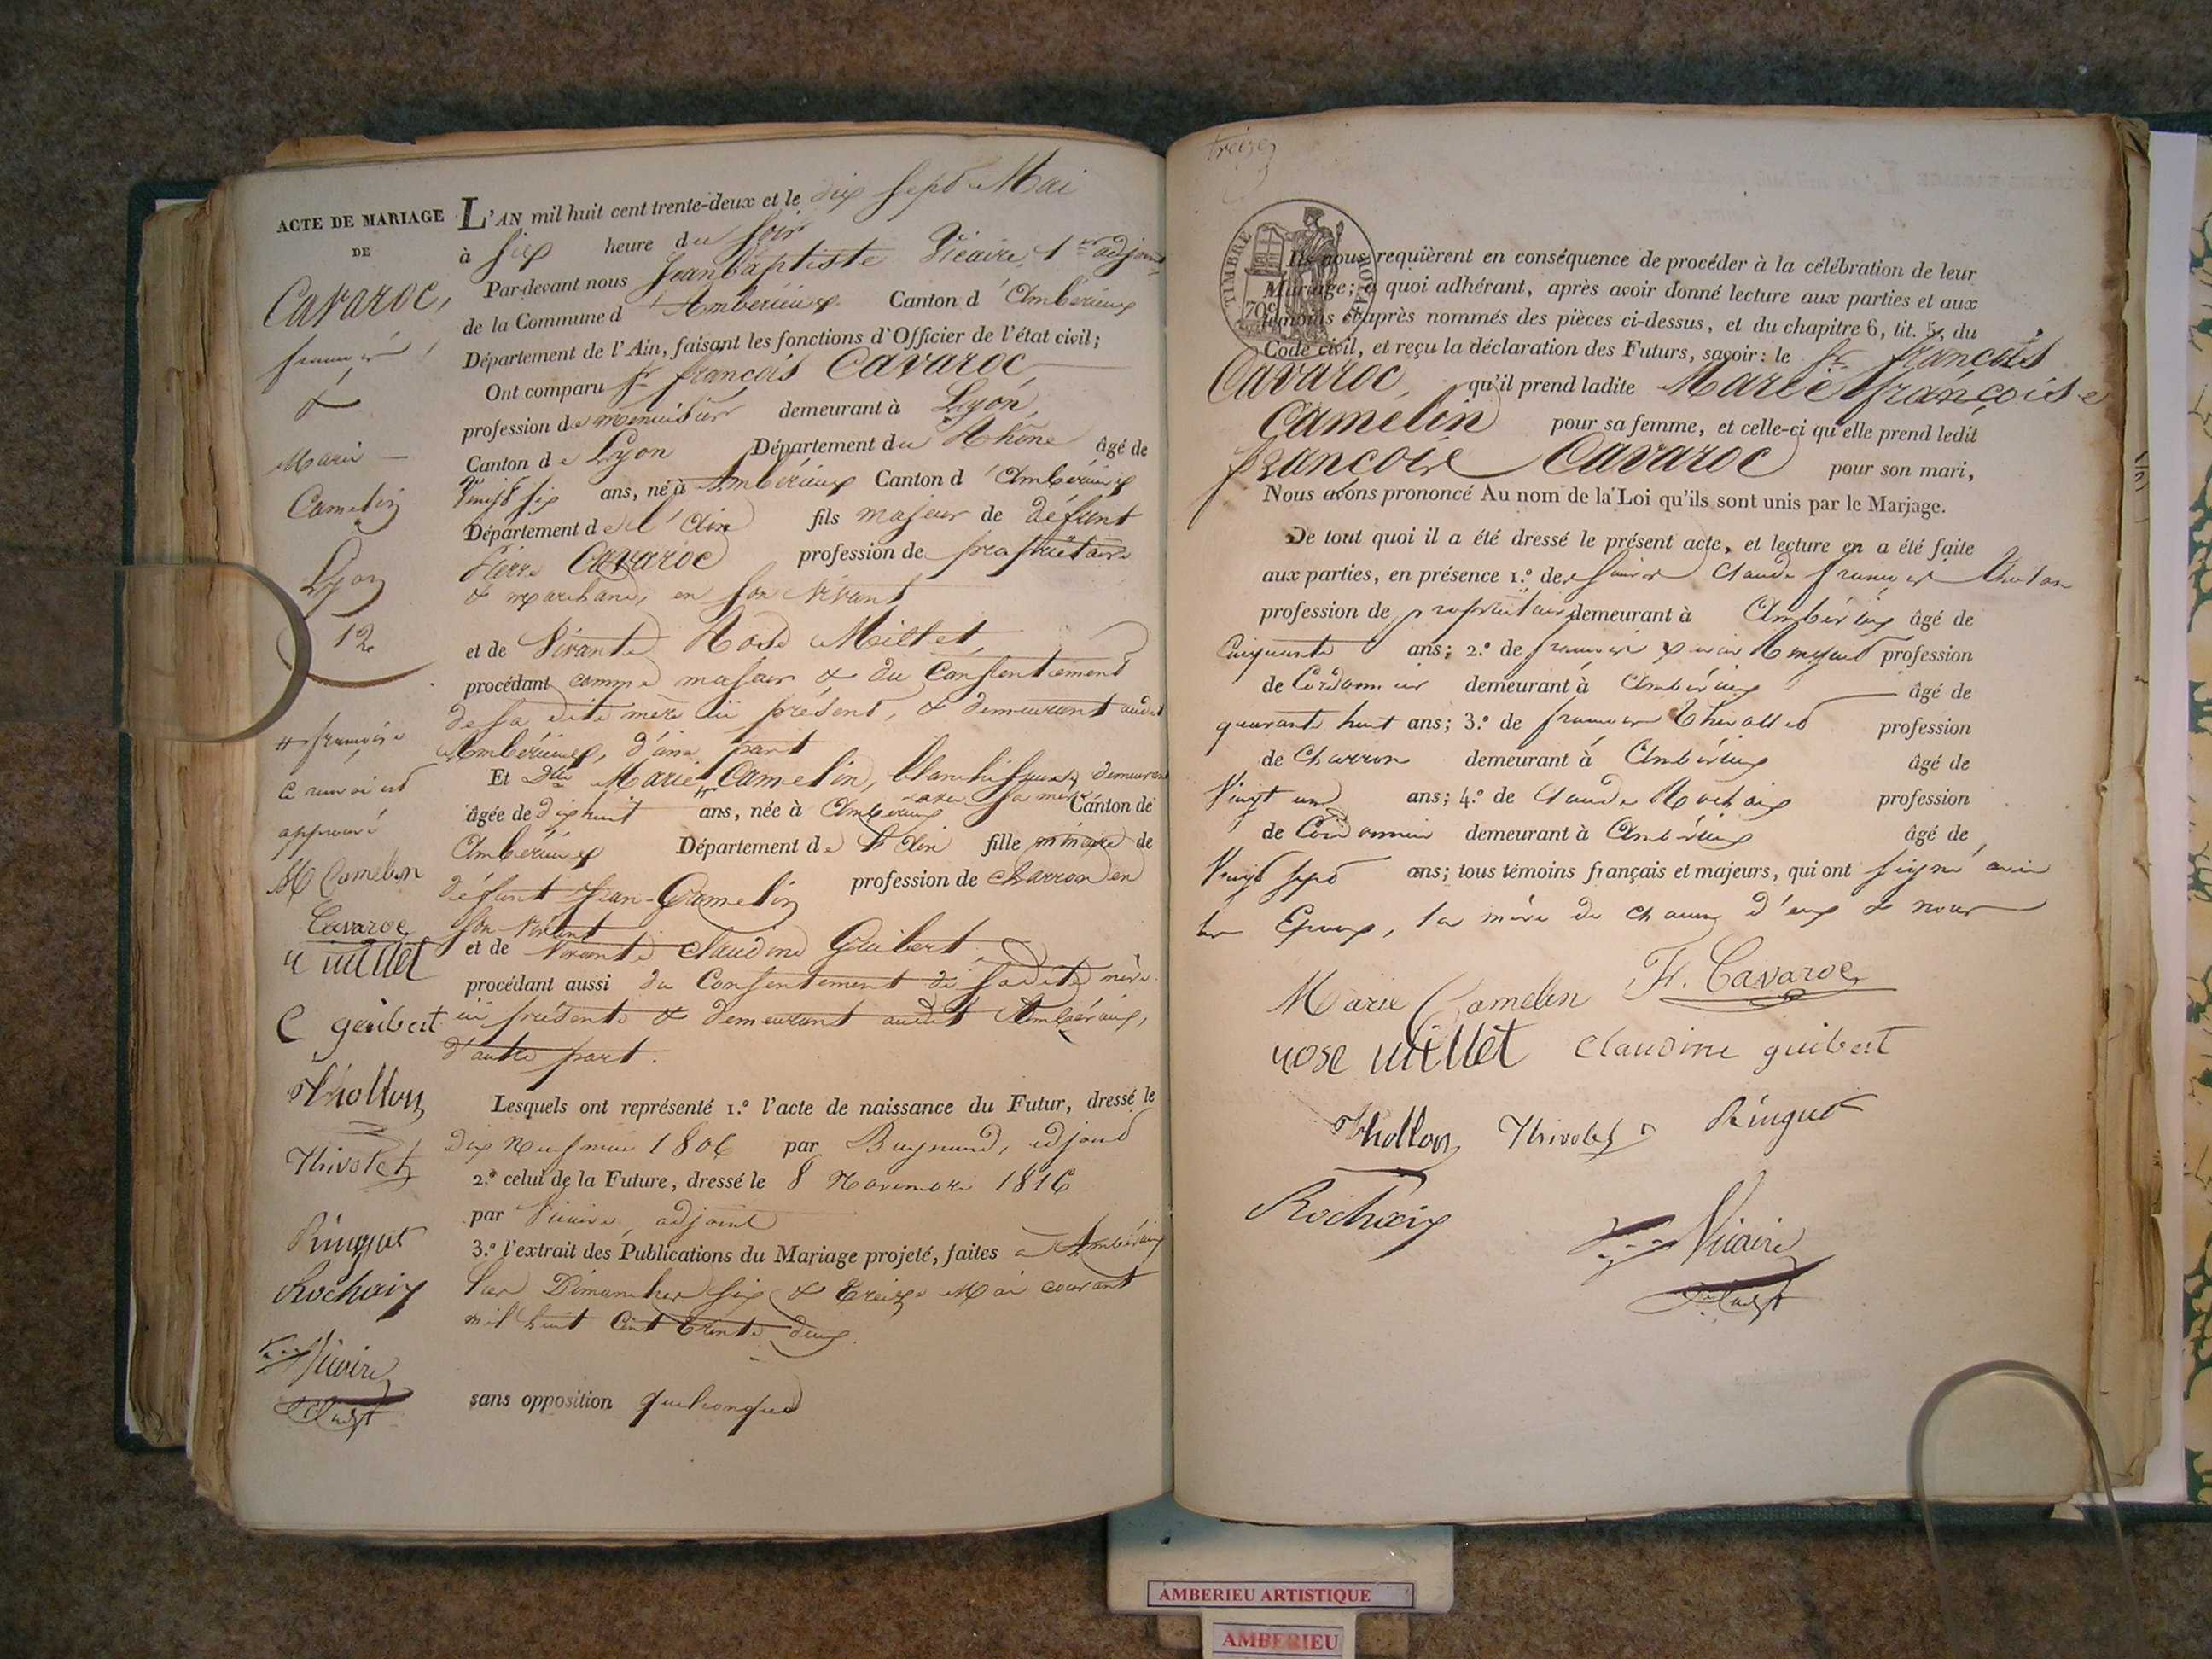 ACTE DE MARIAGE
DE
Cavaroc,
françois
&
Marie
Camelin
Lyon
12
# françoise
ce renvoi est
approuvé
M Camelin
Cavaroc
r millet
C guibert
Thollon
Thivolet
Ringuet
Rochaix
Vicaire
adjt
L'AN mil huit cent trente-deux et le dix sept Mai
à six heure du soir
Par-devant nous Jean Baptiste Vicaire, 1er adjoint
de la Commune d'Ambérieux Canton d'Ambérieux
Département de l'Ain, faisant les fonctions d'Officier de l'état civil;
Ont comparu sr françois Cavaroc,
profession de menuisier demeurant à Lyon,
Canton de Lyon Département du Rhône âgé de
Vingt six ans, né à Ambérieux Canton d'Ambérieux
Département de l'Ain fils majeur de défunt
Pierre Cavaroc profession de propriétaire
& marchand, en son vivant
et de Vivante Rose Millet,
procédant comme majeur & du Consentement
de sa dite mère ici présent, & demeurant audit
Ambérieux, d'une part
Et Dlle Marie # Camelin, blanchisseuse demeurant
avec sa mère
âgée de dix huit ans, née à Ambérieux Canton de
Ambérieux Département de l'Ain fille mineure de
défunt Jean Camelin profession de charron en
son vivant
et de Vivante Claudine Guibert,
procédant aussi du Consentement de sadite mère
ici présente & demeurant audit Ambérieux,
d'autre part.
Lesquels ont représenté 1.º l'acte de naissance du Futur, dressé le
dix neuf mai 1806 par adjoint
2.º celui de la Future, dressé le 8 Novembre 1816
par Vicaire, adjoint
3.º l'extrait des Publications du Mariage projeté, faites à Ambérieux
les Dimanches six & treize Mai courant
mil huit Cent trente deux.
sans opposition quelconque
treize
TIMBRE ROYAL
Ils nous requièrent en conséquence de procéder à la célébration de leur
Mariage; à quoi adhérant, après avoir donné lecture aux parties et aux
témoins ci-après nommés des pièces ci-dessus, et du chapitre 6, tit. 5, du
Code civil, et reçu la déclaration des Futurs, savoir: le sr françois
Cavaroc, qu'il prend ladite Marie françoise
Camelin pour sa femme, et celle-ci qu'elle prend ledit
françois Cavaroc pour son mari,
Nous avons prononcé Au nom de la Loi qu'ils sont unis par le Mariage.
De tout quoi il a été dressé le présent acte, et lecture en a été faite
aux parties, en présence 1.º de Claude françois Tholon
profession de propriétaire demeurant à Ambérieux âgé de
Cinquante ans; 2.º de françois Ringuet profession
de Cordonnier demeurant à Ambérieux âgé de
quarante huit ans; 3.º de françois Thivollet profession
de Charron demeurant à Ambérieux âgé de
Vingt un ans; 4.º de Claude Rochaix profession
de Cordonnier demeurant à Ambérieux âgé de
Vingt sept ans; tous témoins français et majeurs, qui ont signé avec
les Epoux, la mère de chacun d'eux & nous
Marie Camelin F. Cavaroc
rose millet Claudine guibert
Thollon Thivolet Ringuet
Rochaix
Vicaire
adjt
AMBERIEU ARTISTIQUE
AMBERIEU